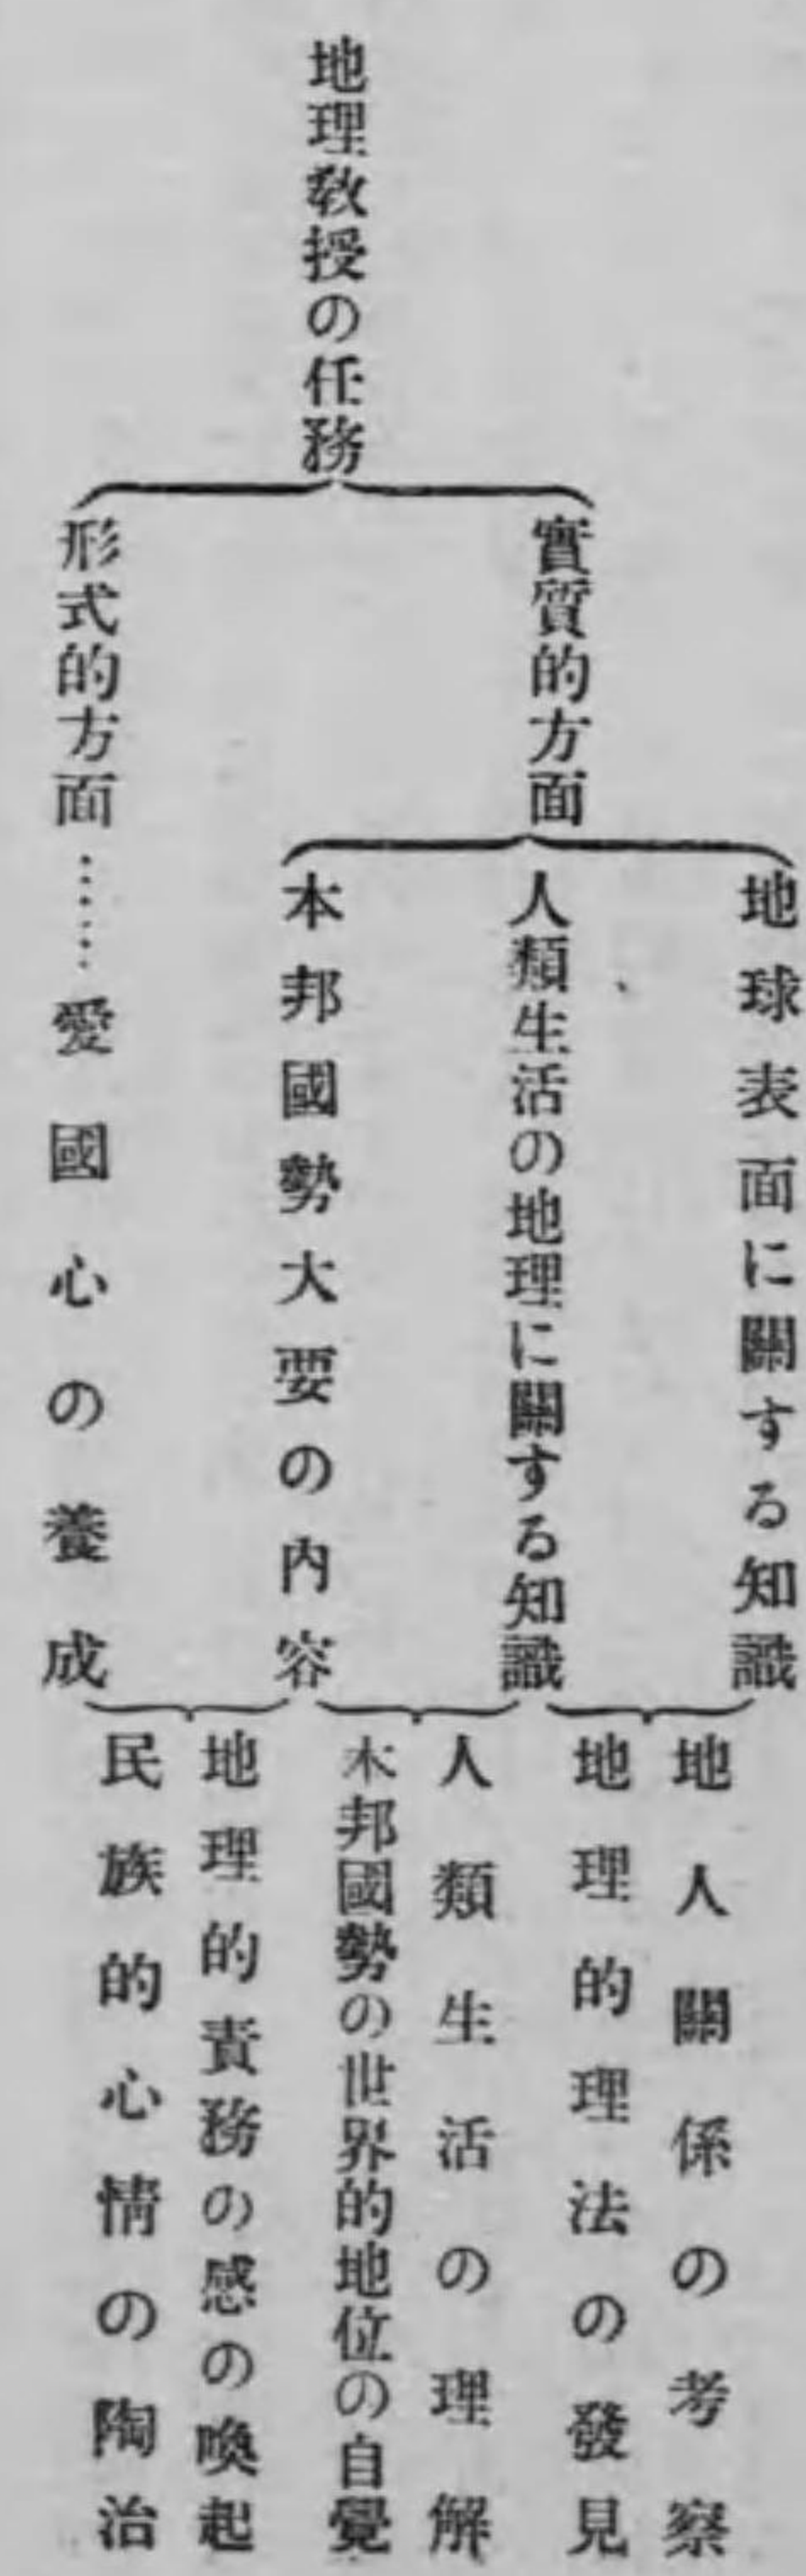 地理敎授の任務
實質的方面
地球表面に關する知識
人類生活の地理に關する知識
本邦國勢大要の內容
形式的方面……愛國心の養成
地人關係の考察
地理的理法の發見
人類生活の理解
本邦國勢の世界的地位の自覺
地理的責務の感の喚起
民族的心情の陶冶